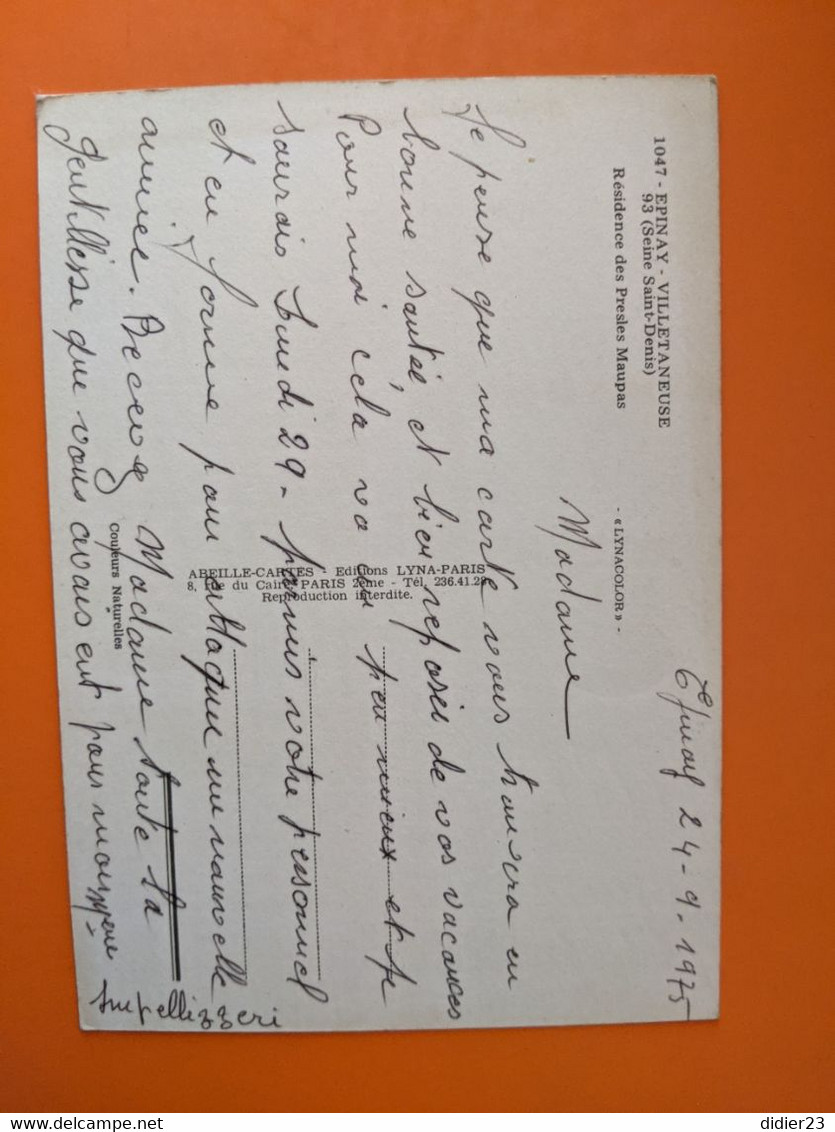 1047 - EPINAY - VILLETANEUSE
93 (Seine Saint-Denis)
Résidence des Presles Maupas
- «LYNACOLOR» -
Epinay 24-9-1975
Madame
Je pense que ma carte vous trouvra en
bonne santée, et bien reposée de vos vacances
Pour moi cela va un peu mieux et je
saurais Lundi 29- parmis votre personnel
et en forme pour attaquer une nouvelle
année. Recevez Madame toute la
gentillesse que vous avais eut pour
ABEILLE-CARTES - Editions LYNA-PARIS
8, Rue du Caire PARIS 2ème - Tél. 236.41.28
Reproduction interdite.
Couleurs Naturelles
delcampe.net
didier23